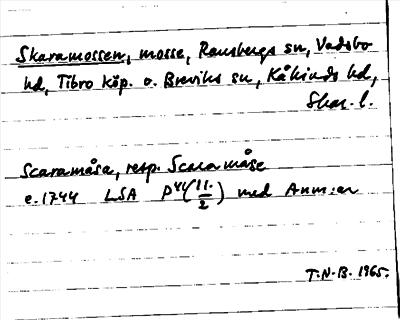 Skaramossen, mosse, Ransbergs sn, Vadsbo
hd, Tibro köp. o. Breviks sn, Kåkinds hd,
Skar. l.
Scaramåsa, resp. Scara måse
c. 1744 LSA P44(11:/2) med Anm:ar
T.N.B. 1965.